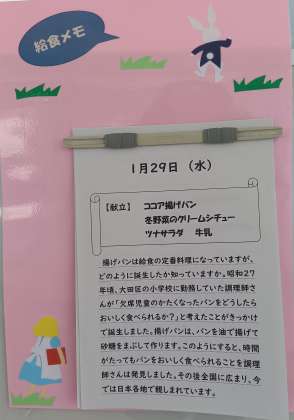 給食メモ
1月29日（水）
【献立】 ココア揚げパン
冬野菜のクリームシチュー
ツナサラダ 牛乳
揚げパンは給食の定番料理になっていますが、
どのように誕生したか知っていますか。昭和27
年頃、大田区の小学校に勤務していた調理師さ
んが「欠席児童のかたくなったパンをどうしたら
おいしく食べられるか？」と考えたことがきっかけ
で誕生しました。揚げパンは、パンを油で揚げて
砂糖をまぶして作ります。このようにすると、時間
がたってもパンをおいしく食べられることを調理
師さんは発見しました。その後全国に広まり、今
では日本各地で親しまれています。